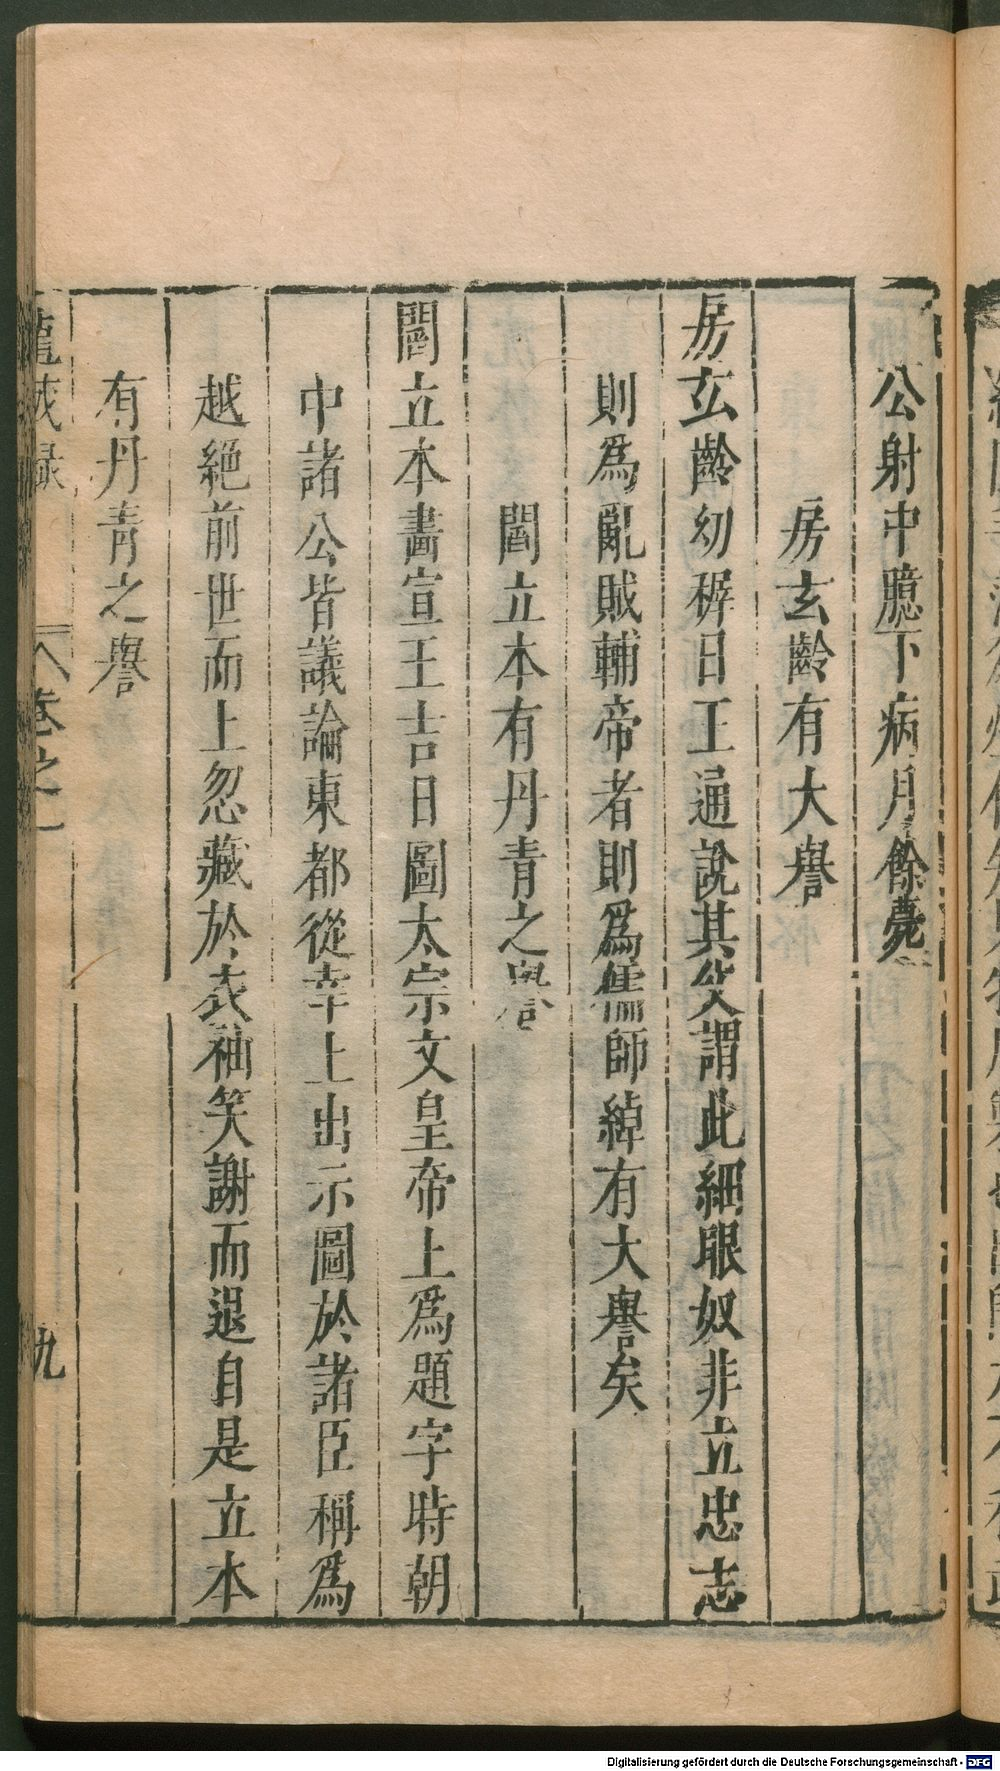 公射中臆下病月餘薨
房玄齡有大譽
房玄齡幼稺日王通說其文謂此細眼奴非立忠志
則爲亂賊輔帝者則爲儒師綽有大譽矣
閻立本有丹青之譽
閻立本畫宣王吉日圖太宗文皇帝上爲題字時朝
中諸公皆議論東都從幸上出示圖於諸臣稱爲
越絕前世而上忽藏於衣袖笑謝而退自是立本
有丹青之譽
龍城録 卷之一 九
Digitalisierung gefördert durch die Deutsche Forschungsgemeinschaft - DFG